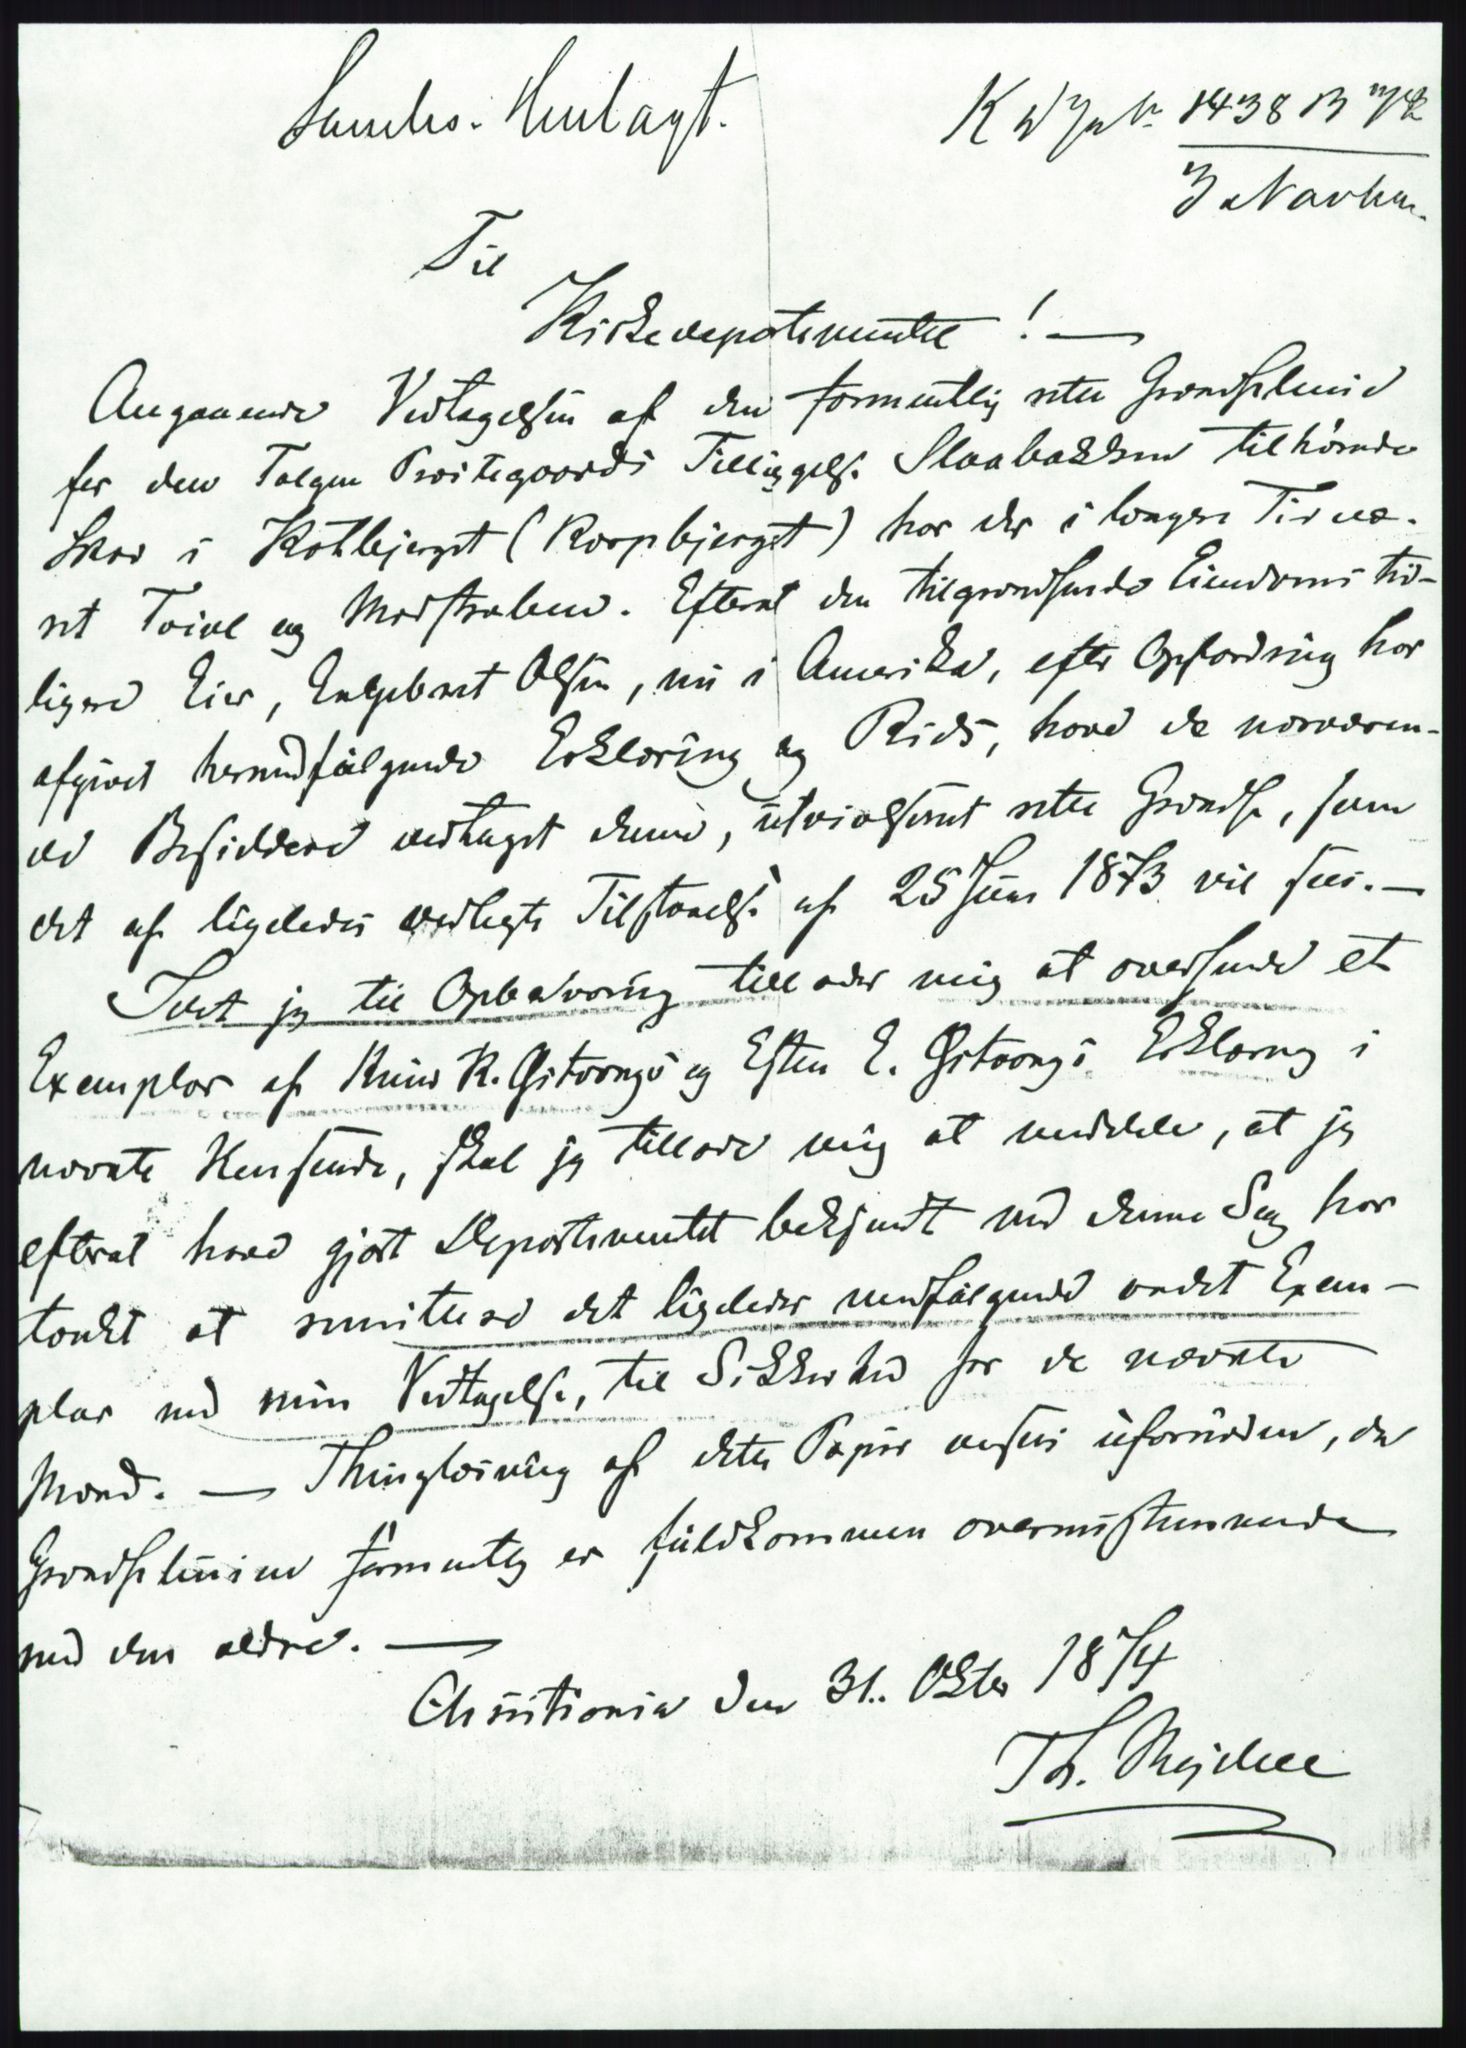 Henlagt.
1438 B 74
3 Novbr.
Til
Kirkedepartementet! —
Angaaende Vedtagelsen af den formentlig rette Grændselinie
for den Tolgen Præstegaards Tillæggelse Slaabakken tilhørende
Skov i Kothbjerget (Korpbjerget) har der i længere Tid væ-
ret Tvivl og Modstræben. Efterat den tilgrændsende Eiendoms tid-
ligere Eier, Engebret Olsen, nu i Amerika, efter Opfordring har
afgivet hermedfølgende Erklæring og Rids, have de nærværen-
de Besiddere vedtaget denne, utvivlsomt rette Grændse, som
det af ligeledes vedlagte Tilstaaelse af 25 Juni 1873 vil sees. —
Idet jeg til Opbevaring tillader mig at oversende et
Exemplar af Knud K. Østvangs og Esten E. Østvangs Erklæring i
nævnte Henseende, skal jeg tillade mig at meddele, at jeg
efterat have gjort Departementet bekjendt med denne Sag har
tænkt at remittere det ligeledes medfølgende andet Exem-
plar med min Vedtagelse, til Sikkerhed for de nævnte
Mænd. — Thinglæsning af dette Papir ansees ufornøden, da
Grændselinien formentlig er fuldkommen overensstemmende
med den ældre. —
Christiania den 31. Oktbr 1874
Th.